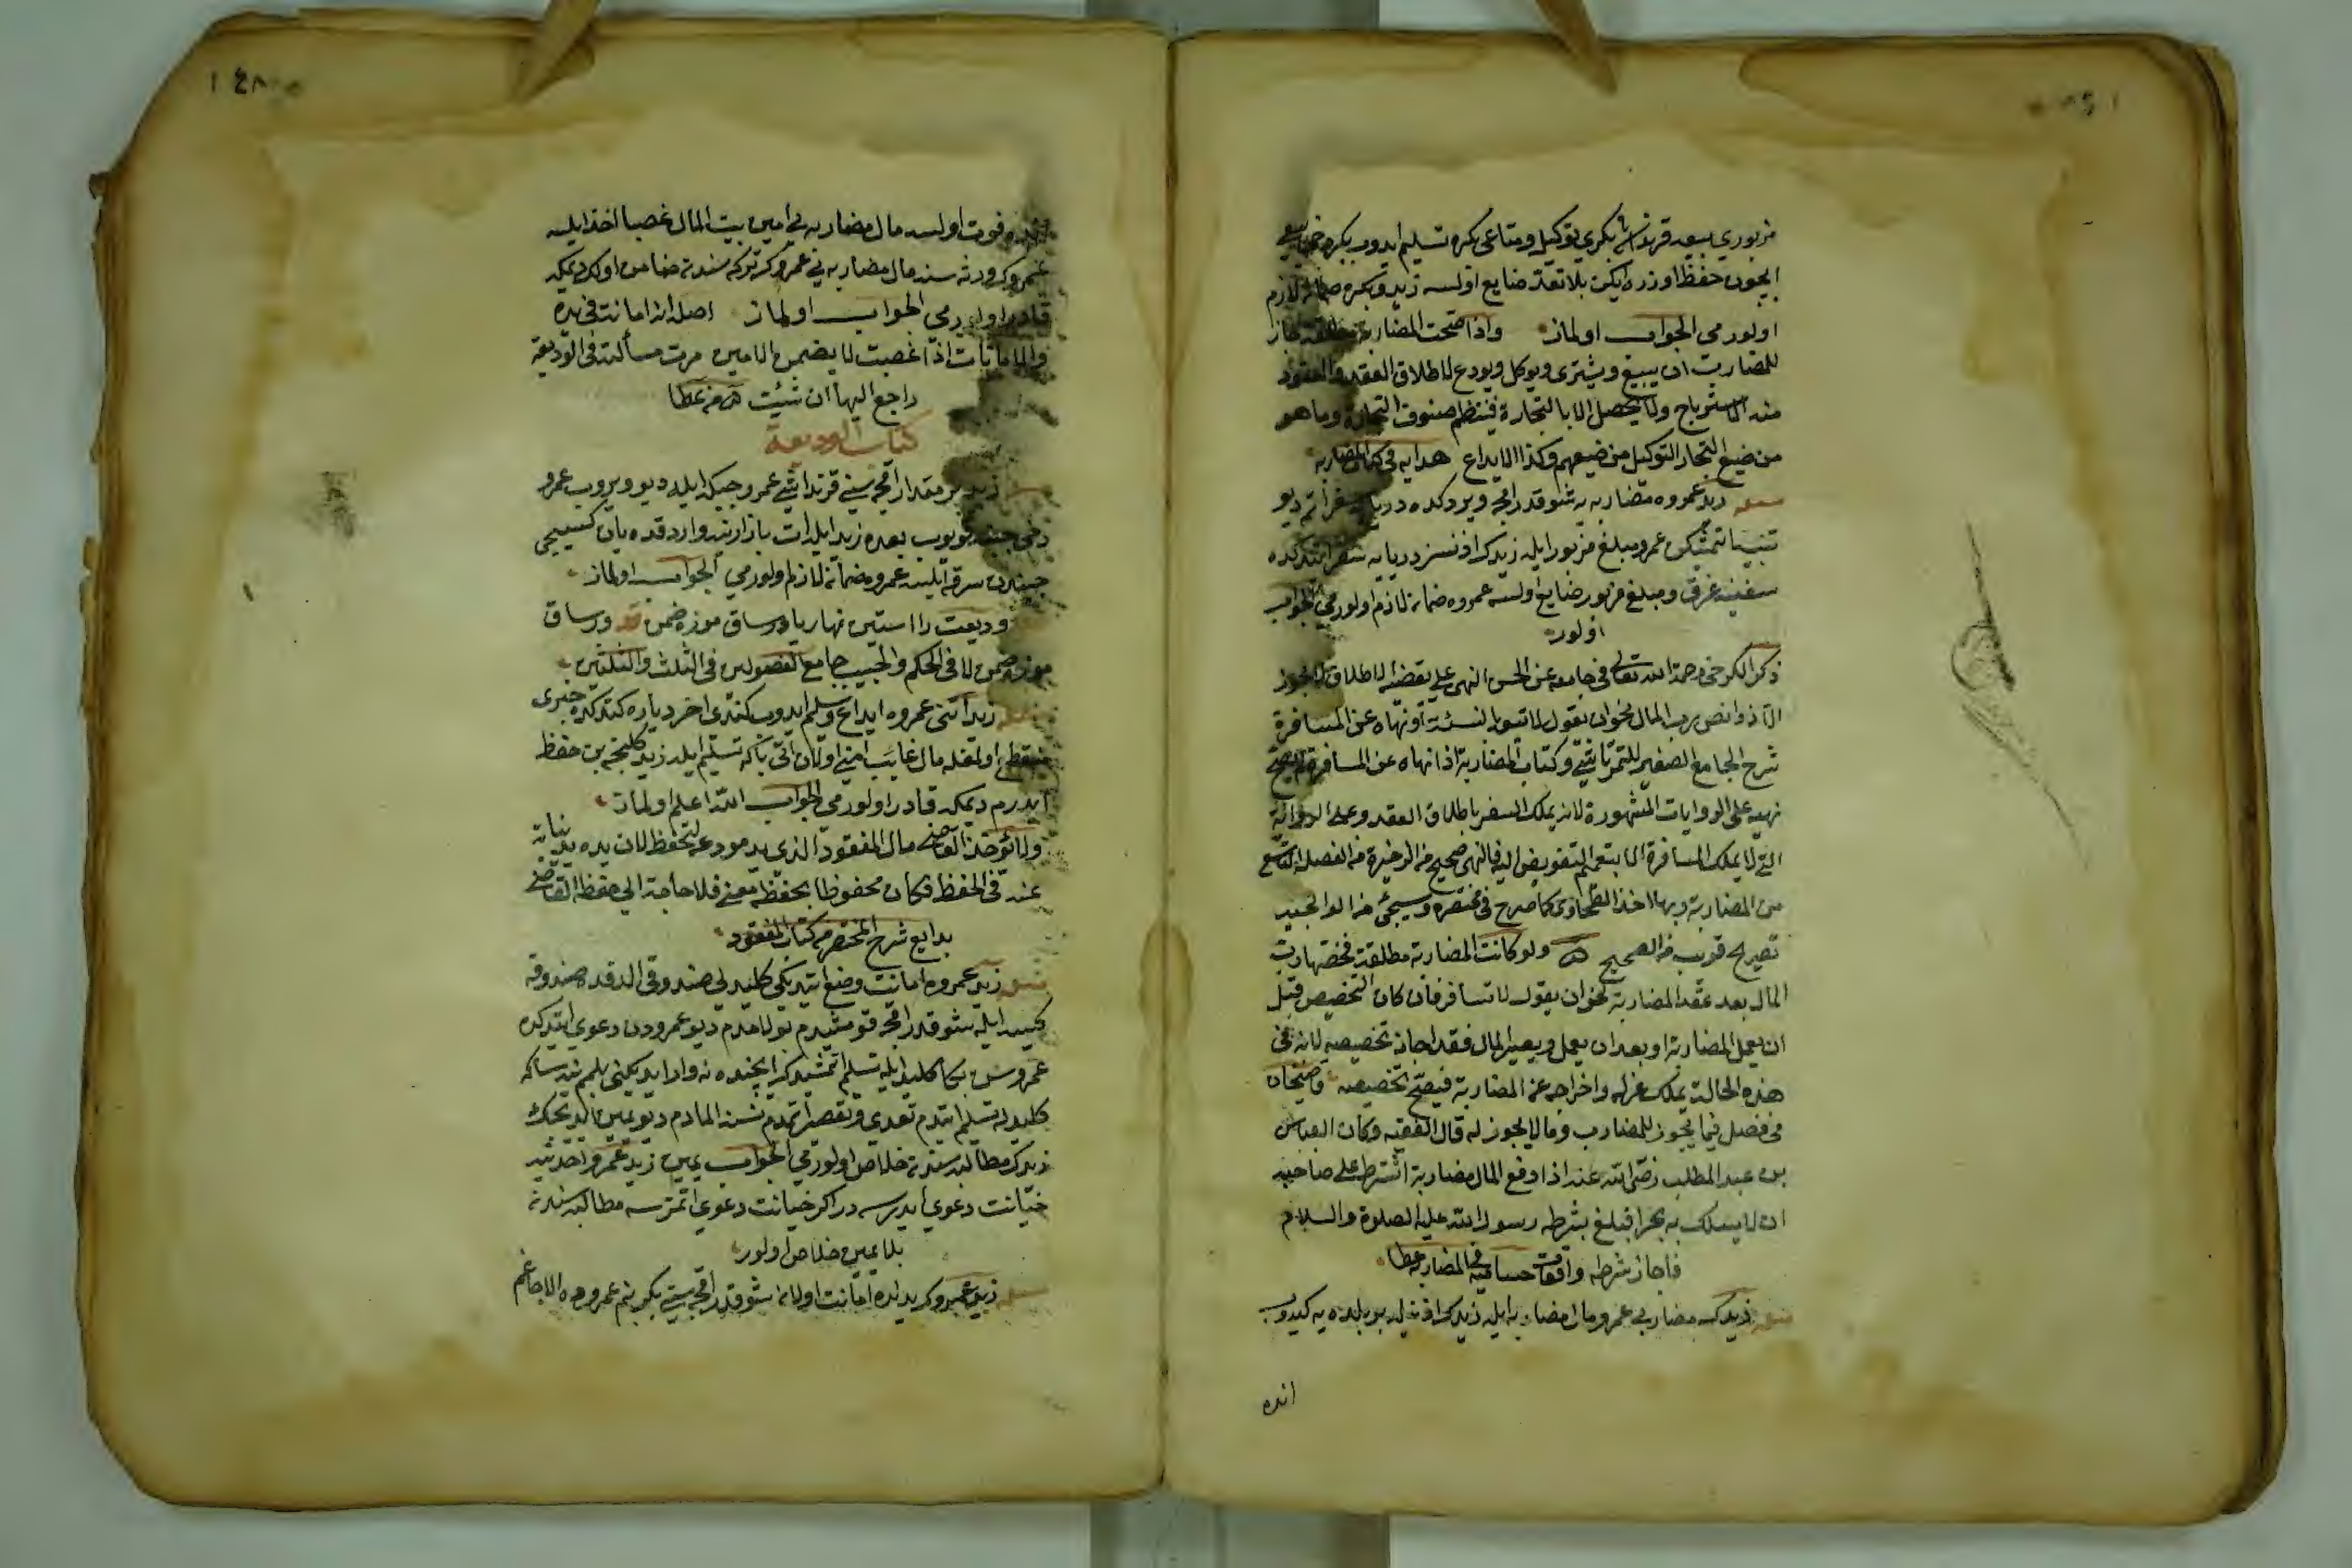 مزبوري بيعه قرنداشي بكري توكيل ومتاعي بكره تسليم ايدوب بكره
ايچون حفظ اوزره ايكن بلا تعد ضايع اولسه زيد وبكره ضمان لازم
اولورمي الجواب اولماز واذا صحت المضاربة مطلقة جاز
للمضارب ان يبيع ويشترى ويوكل ويودع لاطلاق العقد والمقصود
منه الاسترباح ولا يحصل الا بالتجارة فينتظم صنوف التجارة وما هو
من صنيع التجار التوكيل من صنيعهم وكذا الايداع هدايه في كتاب المضاربه
مسئله زيد عمروه مضاربه يه شو قدر اقچه ويردكده درياده سفر اتمه ديو
تنبيه اتمشكن عمرو مبلغ مزبور ايله زيدك اذنسز دريايه سفر ايتدكده
سفينه غرق ومبلغ مزبور ضايع اولسه عمروه ضمان لازم اولورمي الجواب
اولور
ذكر الكرخي رحمة الله تعالى في جامعه عن الحسن النهي على نقيضه الاطلاق لا يجوز
الا اذا نص رب المال نحو ان يقول لا تبع بالنسئة او نهاه عن المسافرة
شرح الجامع الصغير للتمرتاشي وكتاب المضاربة اذا نهاه عن المسافرة لا يصح
نهيه على الروايات المشهورة لانه يملك السفر باطلاق العقد وعلى الرواية
التي لا يملك المسافرة الا بتعميم التفويض اليه فالنهي صحيح من الذخيرة من الفصل التاسع
من المضاربة وبها اخذ الطحاوي كما صرح في مختصره وسيجئ من
تصريح قريب من الصحيح ولو كانت المضاربة مطلقة فخصها رب
المال بعد عقد المضاربة نحو ان يقول لا تسافر فان كان التخصيص قبل
ان يعمل المضاربة او بعد ان يعمل ويصير المال فقد اجاز تخصيصه لانه في
هذه الحالة يملك عزله واخراجه عن المضاربة فيصح تخصيصه قاضيخان
في فصل فيما يجوز للمضارب وما لا يجوز له قال الفقيه وكان العباس
بن عبد المطلب رضي الله عنه اذا دفع المال مضاربة اشترط على صاحبه
ان لا يسلك به بحرا فبلغ بشرطه رسول الله عليه الصلوة والسلام
فاجاز شرطه واقعات حساميه في المضاربة
مسئله زيدك مضاربي عمرو مال مضاربه ايله زيدك اذنيله بر بلده يه كيدوب
انده
انده فوت اولسه مال مضاربه يي امين بيت المال غصبا اخذ ايلسه
عمروك ورثه سنه مال مضاربه يي عمروك تركه سندن ضامن اولك ديمكه
قادر اولورمي الجواب اولماز اصله انه امانت في يده
والامانات اذا غصبت لا يضمن الامين مرت مسألته في الوديعة
راجع اليها ان شئت
كتاب الوديعة
زيد بر مقدار اقچه سني قرنداشي عمرو جبكه ايله ديو ويروب عمرو
دخي جبنه قويوب بعده زيد ايله ات بازارينه واردقده يان كسيجي
جبندن سرقه ايلسه عمروه ضمان لازم اولورمي الجواب اولماز
وديعت را استين نهاد يا در ساق موزه ضمن در ساق
موزه ضمن لا في الحكم والجيب جامع الفصولين في الثلث والثلثين
زيد اتني عمروه ايداع وتسليم ايدوب كندي اخر دياره كتدكده خبري
منقطع اولمغله مال غايب اميني اولان اتي بكا تسليم ايله زيد كلنجه بن حفظ
ايدرم ديمكه قادر اولورمي الجواب الله اعلم اولماز
ولا يؤخذ القاضي مال المفقود الذي يد مودعه ليحفظ لان يده يد نيابة
عنه في الحفظ فكان محفوظا بحفظه معنى فلا حاجة الى حفظ القاضي
بدايع شرح المختصر من كتاب المفقود
زيد عمروه امانت وضع ايتديكي كليدلي صندوقي الدقده صندوقه
كيسه ايله شو قدر اقچه قومشيدم بولامدم ديو عمرودن دعوي ايتدكده
عمرو سن بكا كليد ايله تسليم اتمشيدك ايچنده نه وار ايديكني بلمم بنده سكا
كليدله تسليم ايتدم تعدي وتقصير اتمدم نسنه المادم ديو يمين ايديجك
زيدك مطالبه سندن خلاص اولورمي الجواب يمين زيد عمرو اخذ
خيانت دعوي ايدرسه در اكر خيانت دعوي اتمزسه مطالبه سندن
بلا يمين خلاص اولور
زيد عمروك يدنده امانت اولان شو قدر اقچه سني بكر بنم عمروده الاجاغم